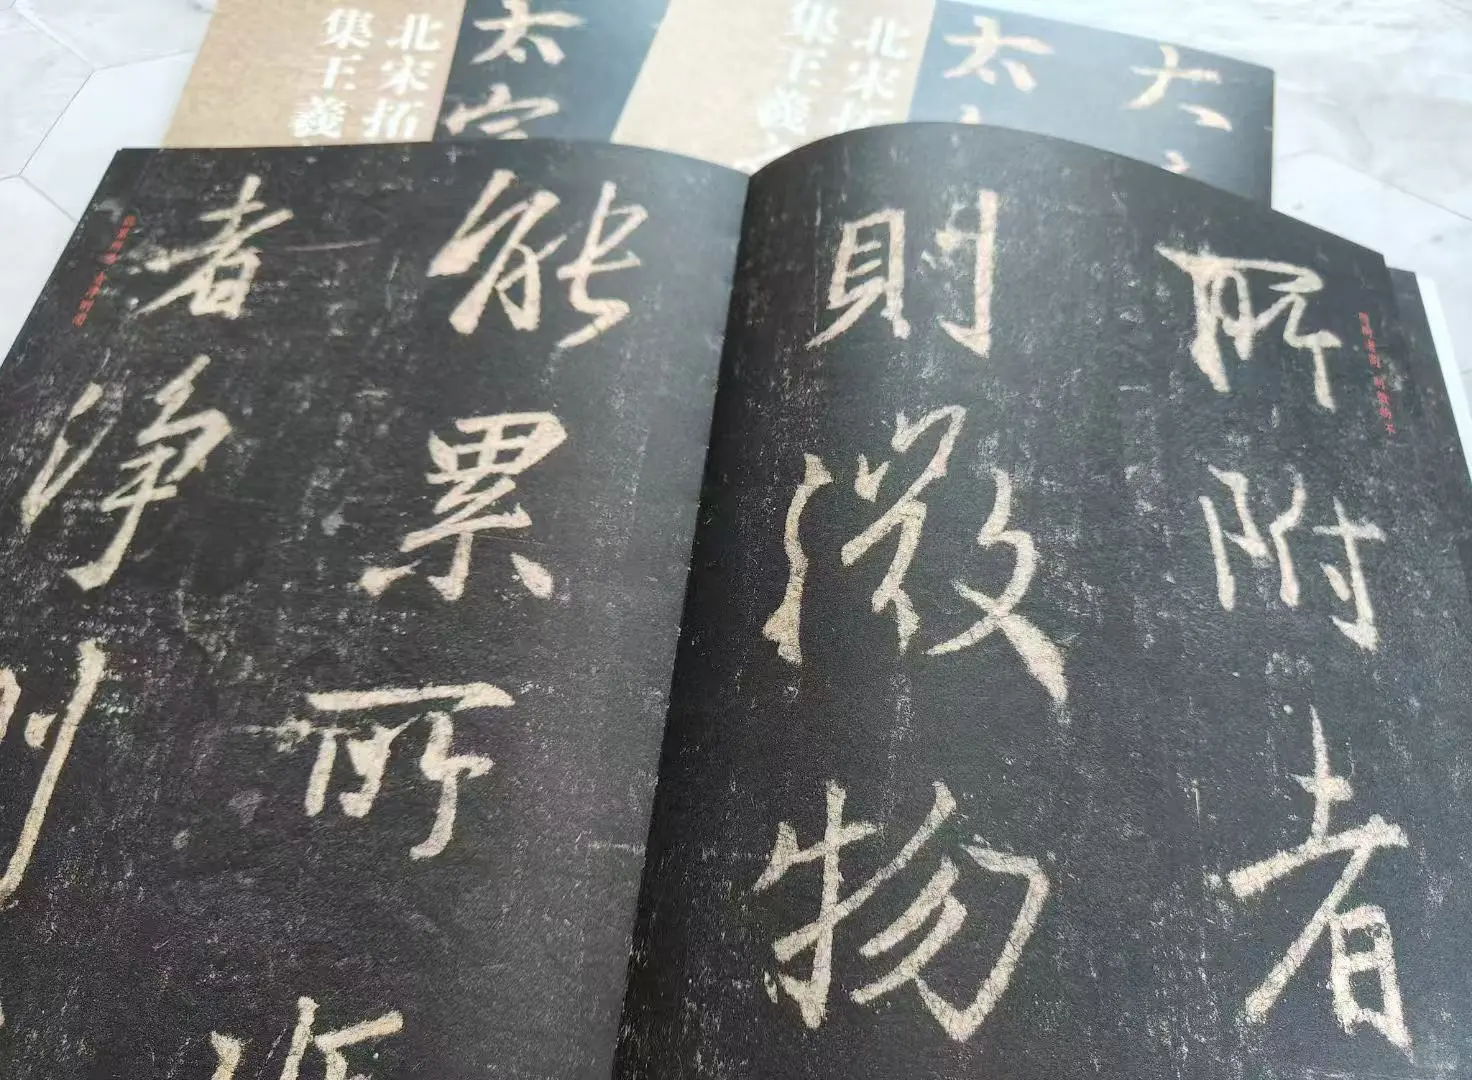 大
太
北宋拓
集王羲
太
北宋拓
集王羲
所附者
則微物
能累所
者淨